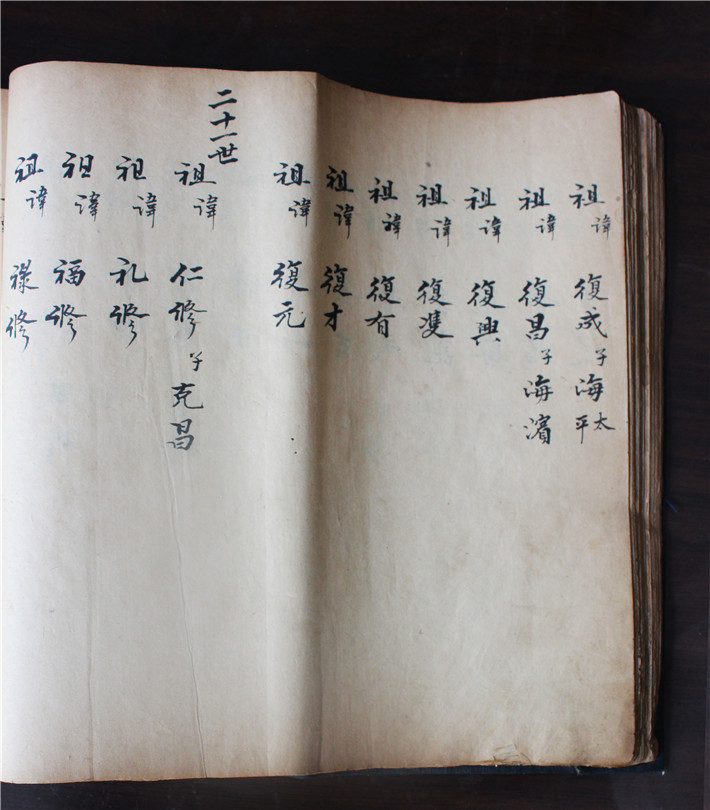 祖諱復成子海太平
祖諱復昌子海濱
祖諱復興
祖諱復隻
祖諱復有
祖諱復才
祖諱復元
二十一世
祖諱仁修子克昌
祖諱礼修
祖諱福修
祖諱祿修